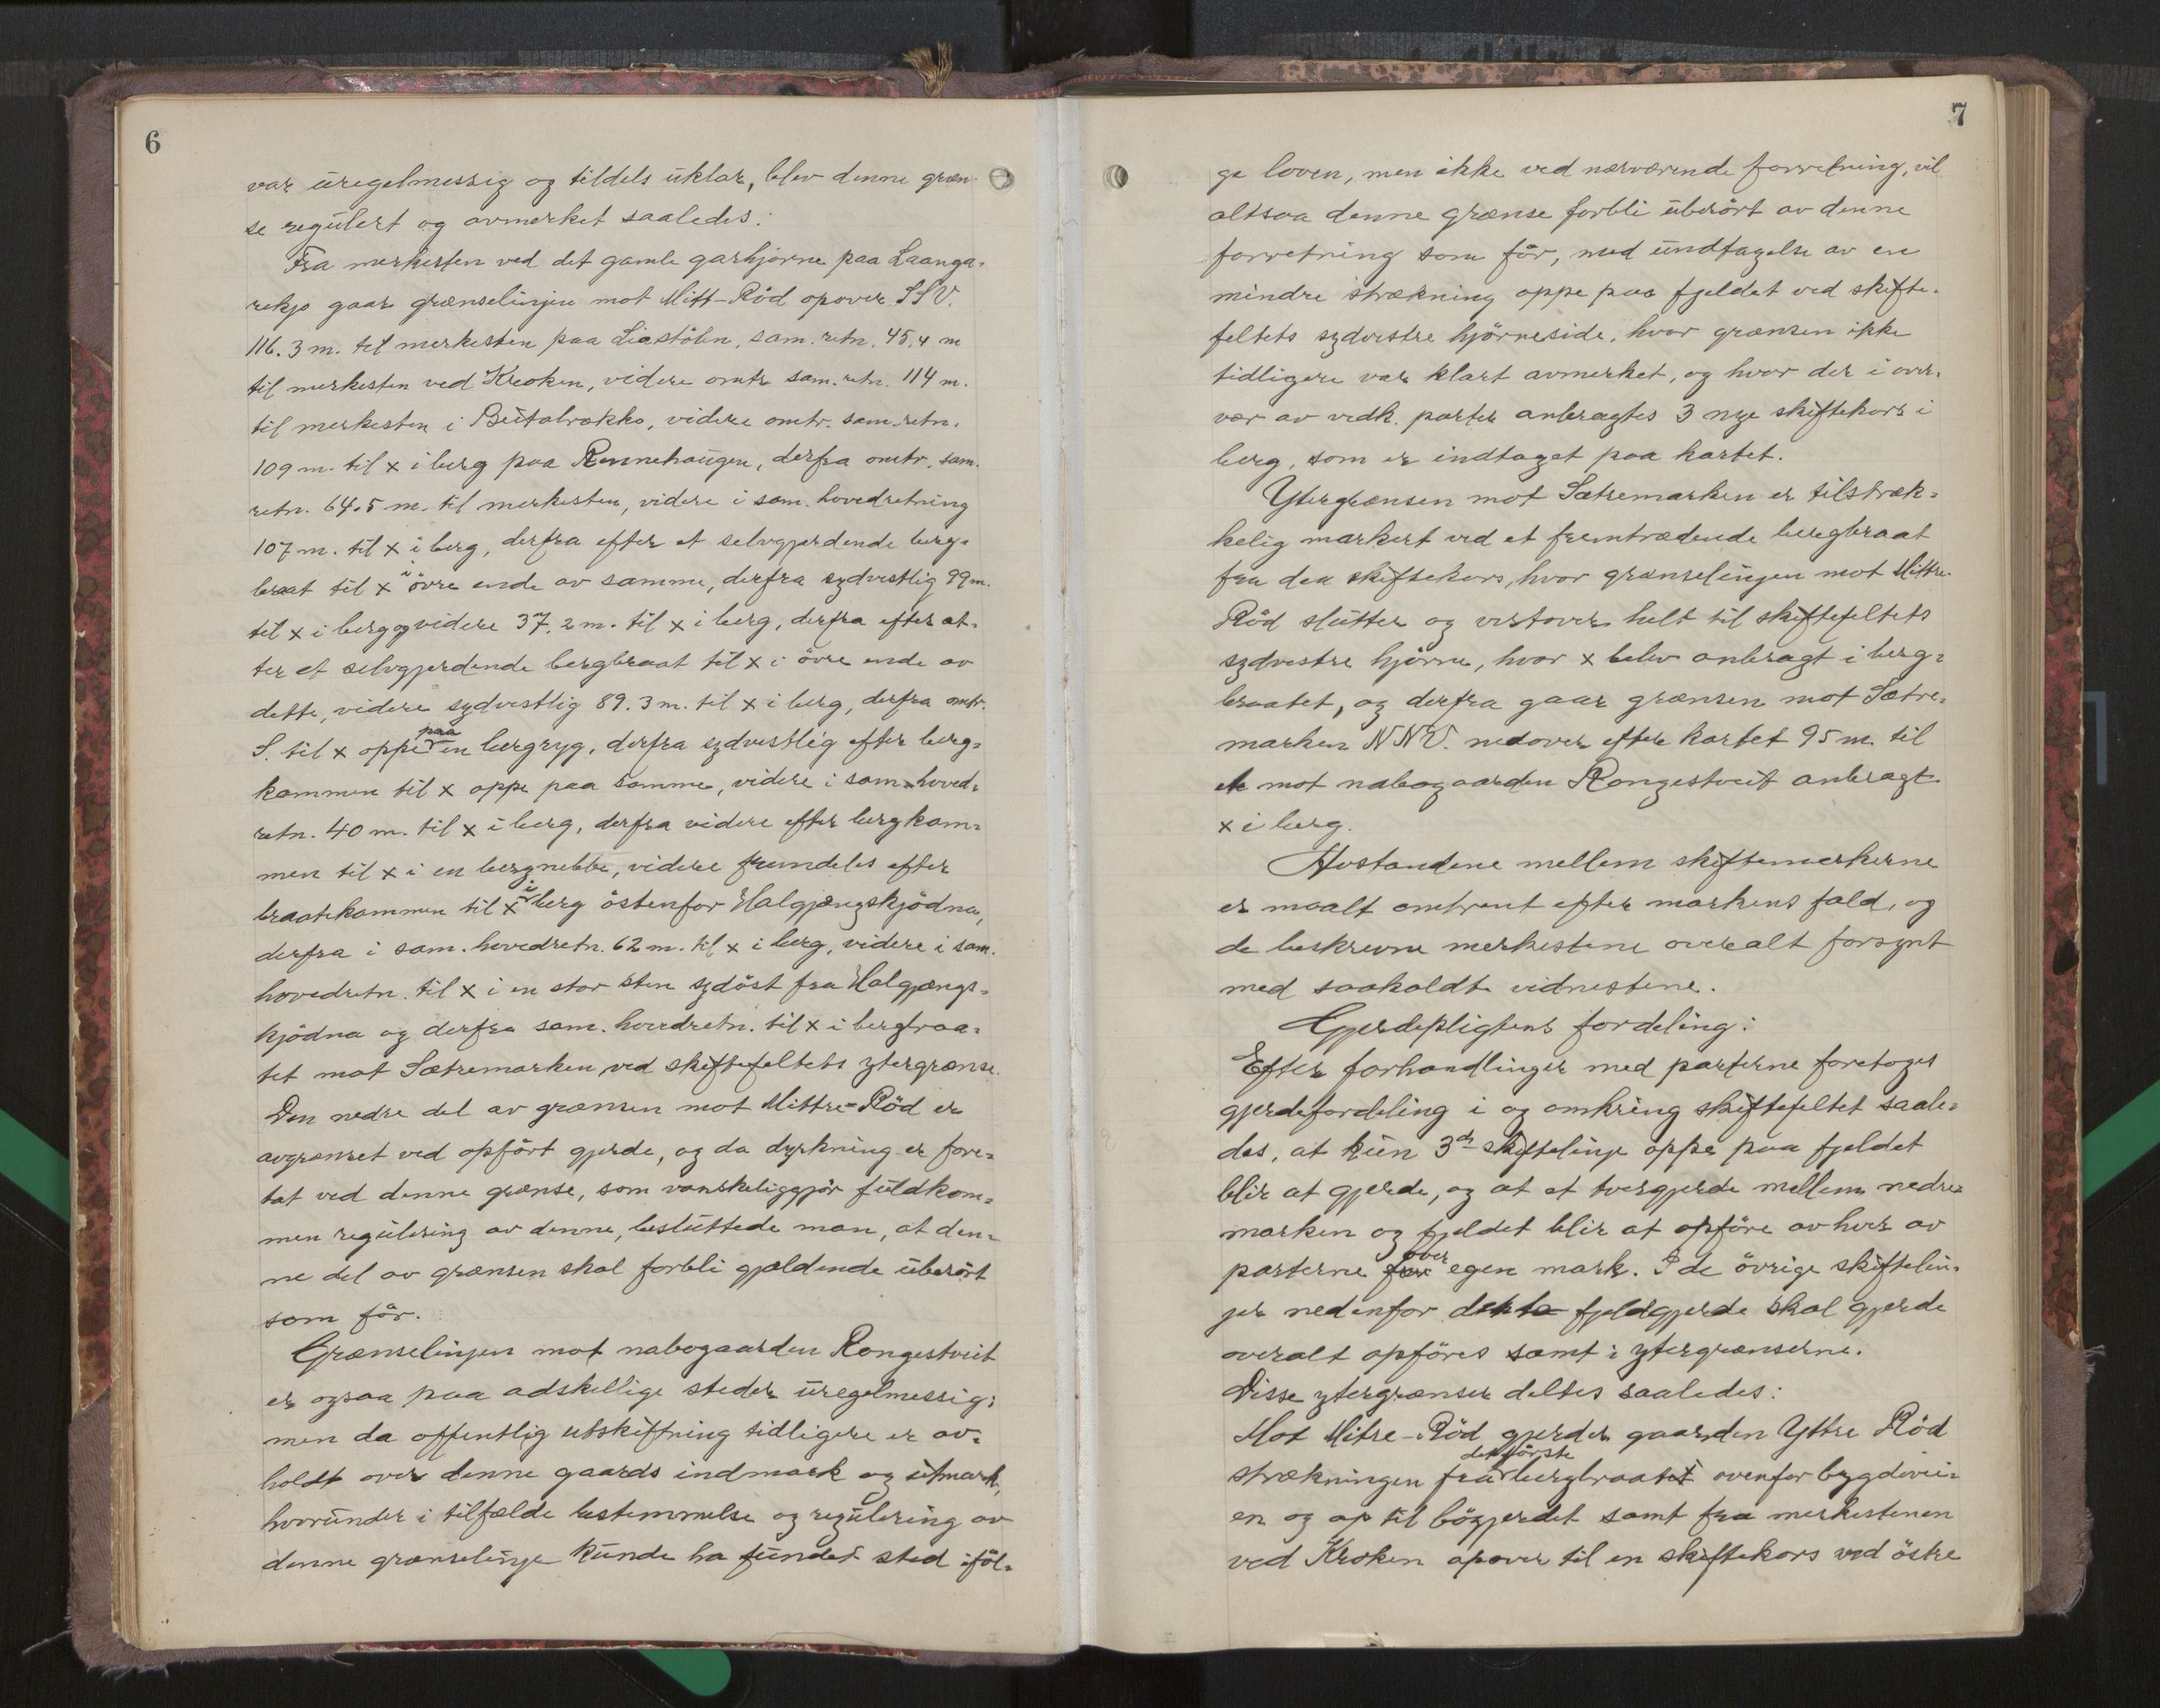 6
var uregelmessig og tildels uklar, blev denne græn-
se regulert og avmerket saaledes:
Fra merkesten ved det gamle garhjørne paa Laanga-
rekjo gaar grænselinjen mot Mitt-Röd opover SSV.
116.3 m. til merkesten paa Liastölen, sam. retn. 45,4 m
til merkesten ved Kroken, videre omtr. sam. retn. 114 m.
til merkesten i Butabrækko, videre omtr. sam. retn.
109 m. til x i berg paa Rennehaugen, derfra omtr. sam.
retn. 64.5 m. til merkesten, videre i sam. hovedretning
107 m. til x i berg, derfra efter et selvgjerdende berg-
braat til x i övre ende av samme, derfra sydvestlig 99 m.
til x i berg og videre 37,2 m. til x i berg, derfra efter at-
ter et selvgjerdende bergbraat til x i övre ende av
dette, videre sydvestlig 89.3 m. til x i berg, derfra omtr.
S. til x oppe paa en bergryg, derfra sydvestlig efter berg-
kammen til x oppe paa samme, videre i sam. hoved-
retn. 40 m. til x i berg, derfra videre efter bergkam-
men til x i en bergnebbe, videre fremdeles efter
braatekammen til x i berg östenfor Halgjængskjödna,
derfra i sam. hovedretn. 62 m. til x i berg, videre i sam.
hovedretn. til x i en stor sten sydöst fra Halgjængs-
kjödna og derfra sam. hovedretn. til x i bergbraa-
tet mot Sætremarken ved skiftefeltets ytergrænse.
Den nedre del av grænsen mot Mittre-Röd er
avgrænset ved opfört gjerde, og da dyrkning er fore-
tat ved denne grænse, som vanskeliggjör fuldkom-
men regulering av denne, besluttede man, at den-
ne del av grænsen skal forbli gjældende uberört
som för.
Grænselinjen mot nabogaarden Rongestveit
er ogsaa paa adskillige steder uregelmessig;
men da offentlig utskiftning tidligere er av-
holdt over denne gaards indmark og utmark,
hvorunder i tilfælde bestemmelse og regulering av
denne grænselinje kunde ha fundet sted iföl-
7
ge loven, men ikke ved nærværende forretning, vil
altsaa denne grænse forbli uberört av denne
forretning som för, med undtagelse av en
mindre strækning oppe paa fjeldet ved skifte-
feltets sydvestre hjörneside, hvor grænsen ikke
tidligere var klart avmerket, og hvor der i over-
vær av vedk. parter anbragtes 3 nye skiftekors i
berg, som er indtaget paa kartet.
Ytergrænsen mot Sætremarken er tilstræk-
kelig markert ved et fremtrædende bergbraat
fra den skiftekors, hvor grænselinjen mot Mittre-
Röd slutter og vestover helt til skiftefeltets
sydvestre hjörne, hvor x blev anbragt i berg-
braatet, og derfra gaar grænsen mot Sætre-
marken NNV. nedover efter kartet 95 m. til
et mot nabogaarden Rongestveit anbragt
x i berg.
Avstandene mellem skiftemerkerne
er maalt omtrent efter markens fald, og
de beskrevne merkestene overalt forsynt
med saakaldte vidnestene.
Gjerdepligtens fordeling:
Efter forhandlinger med parterne foretoges
gjerdefordeling i og omkring skiftefeltet saale-
des, at kun 3de skiftelinje oppe paa fjeldet
blir at gjerde, og at et tvergjerde mellem nedre-
marken og fjeldet blir at opföre av hver av
parterne for over egen mark. I de övrige skiftelin-
jer nedenfor dette fjeldgjerde skal gjerde
overalt opföres samt i ytergrænserne.
Disse ytergrænser deltes saaledes:
Mot Mitre-Röd gjerder gaarden Yttre Röd
strækningen fra det förste bergbraatet ovenfor bygdevei-
en og op til bögjerdet samt fra merkestenen
ved Kroken opover til en skiftekors ved östre